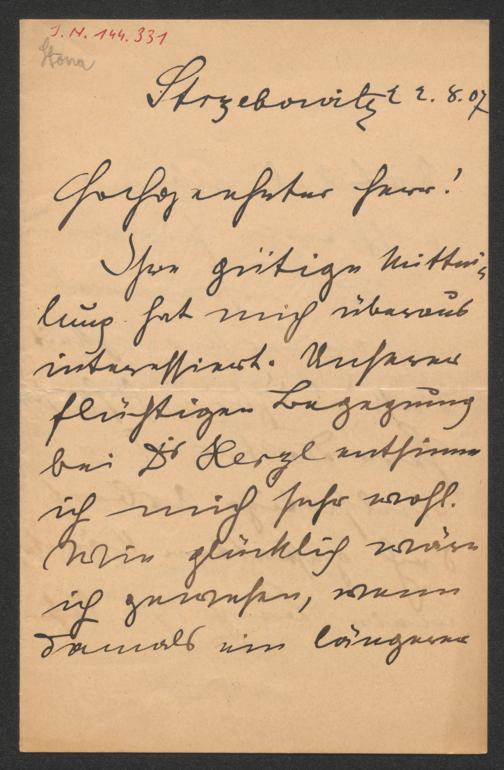 J.N. 144.331
Stona
Strzebowitz 22.8.07
Hochgeehrter Herr!
Ihre gütige Mittei-
lung hat mich überaus
interessiert. Unserer
flüchtigen Begegnung
bei Dr Herzl entsinne
ich mich sehr wohl.
Wie glücklich wäre
ich gewesen, wenn
damals ein längerer